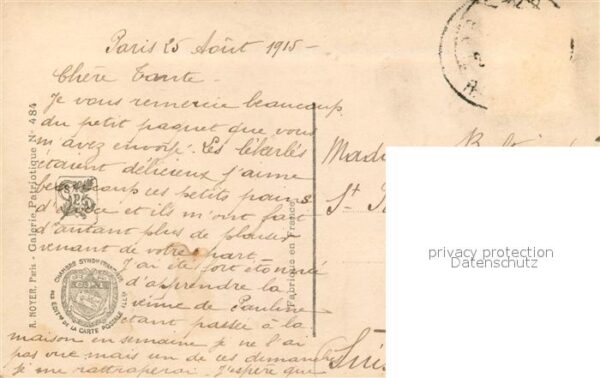 Paris 25 Août 1915 -
Chère Tante -
Je vous remercie beaucoup
du petit paquet que vous
m'avez envoyé. Les lékerlés
étaient délicieux j'aime
beaucoup ces petits pains
d'épice et ils m'ont fait
d'autant plus de plaisir
venant de votre part -
J'ai été fort étonnée
d'apprendre la
venue de Pauline
étant passée à la
maison en semaine je ne l'ai
pas vue mais un de ces dimanches
je me rattraperai J'espère que
A. NOYER, Paris - Galerie Patriotique N° 484
CHAMBRE SYNDICALE FRANÇAISE
DE LA CARTE POSTALE
Fabriquée en France
Mada
St
Suis
privacy protection
Datenschutz